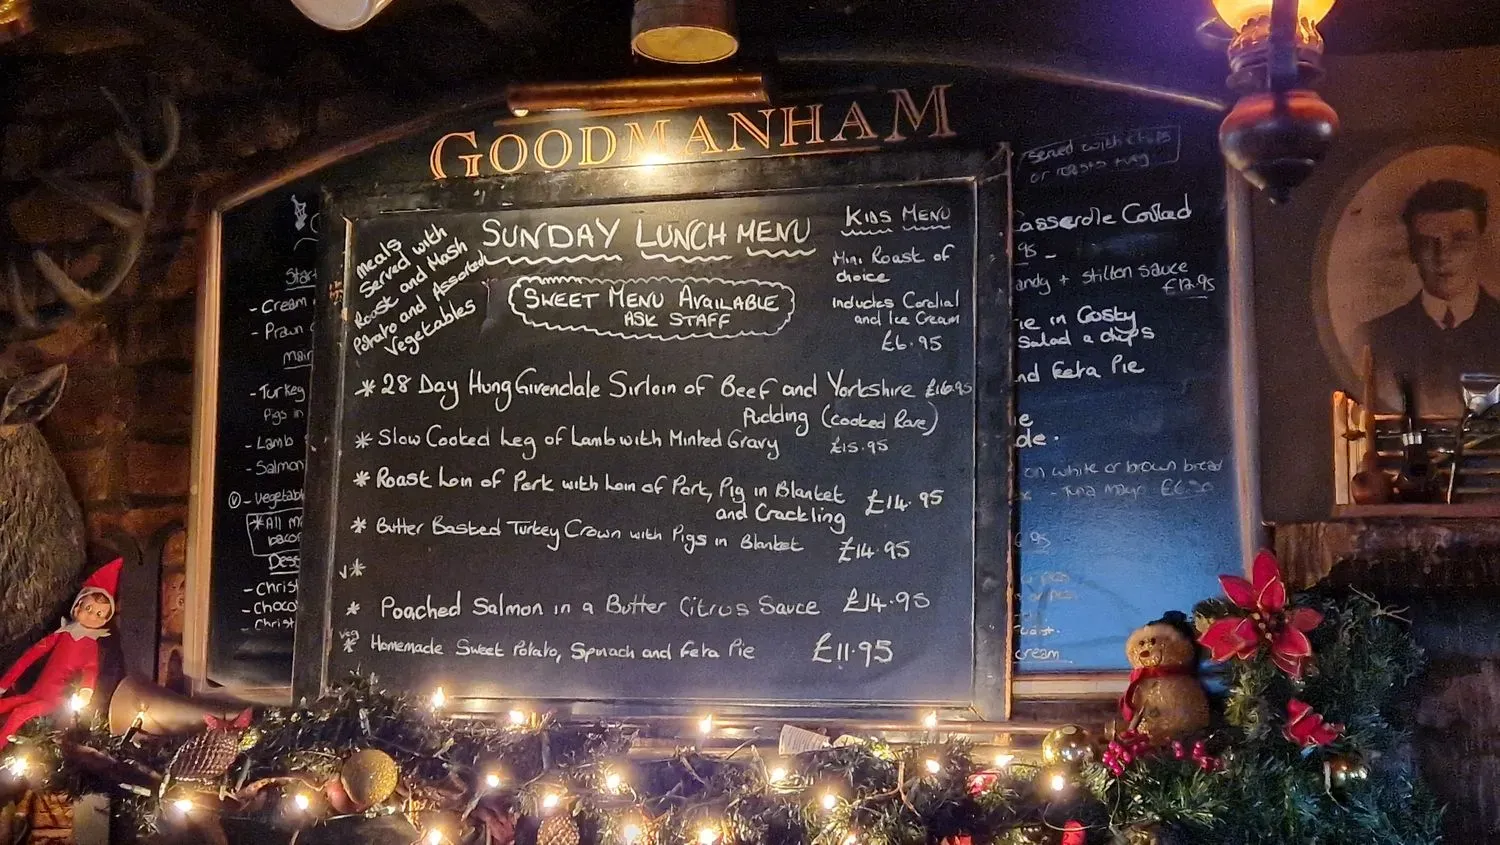 GOODMANHAM
Meals
Served with
Roast and Mash
Potato and Assorted
Vegetables
SUNDAY LUNCH MENU
SWEET MENU AVAILABLE
ASK STAFF
KIDS MENU
Mini Roast of
choice
includes Cordial
and Ice Cream
£6.95
* 28 Day Hung Givendale Sirloin of Beef and Yorkshire £16.95
Pudding (cooked Rare)
* Slow Cooked Leg of Lamb with Minted Gravy £15.95
* Roast Loin of Pork with Loin of Pork, Pig in Blanket £14.95
and Crackling
* Butter Basted Turkey Crown with Pigs in Blanket £14.95
√ *
* Poached Salmon in a Butter Citrus Sauce £14.95
veg
* Homemade Sweet Potato, Spinach and Feta Pie £11.95
Start
- Cream
- Prawn
Main
- Turkey
Pigs in
- Lamb
- Salmon
V - Vegetab
*All m
bacon
Dess
- Christ
- Choco
Christ
served with chips
or roasts + veg
asserole Cooked
95 -
andy + stilton sauce
£12.95
ie in Crusty
Salad & chips
nd Feta Pie
ie
de.
on white or brown bread
- Tuna mayo £6.50
6.95
cream